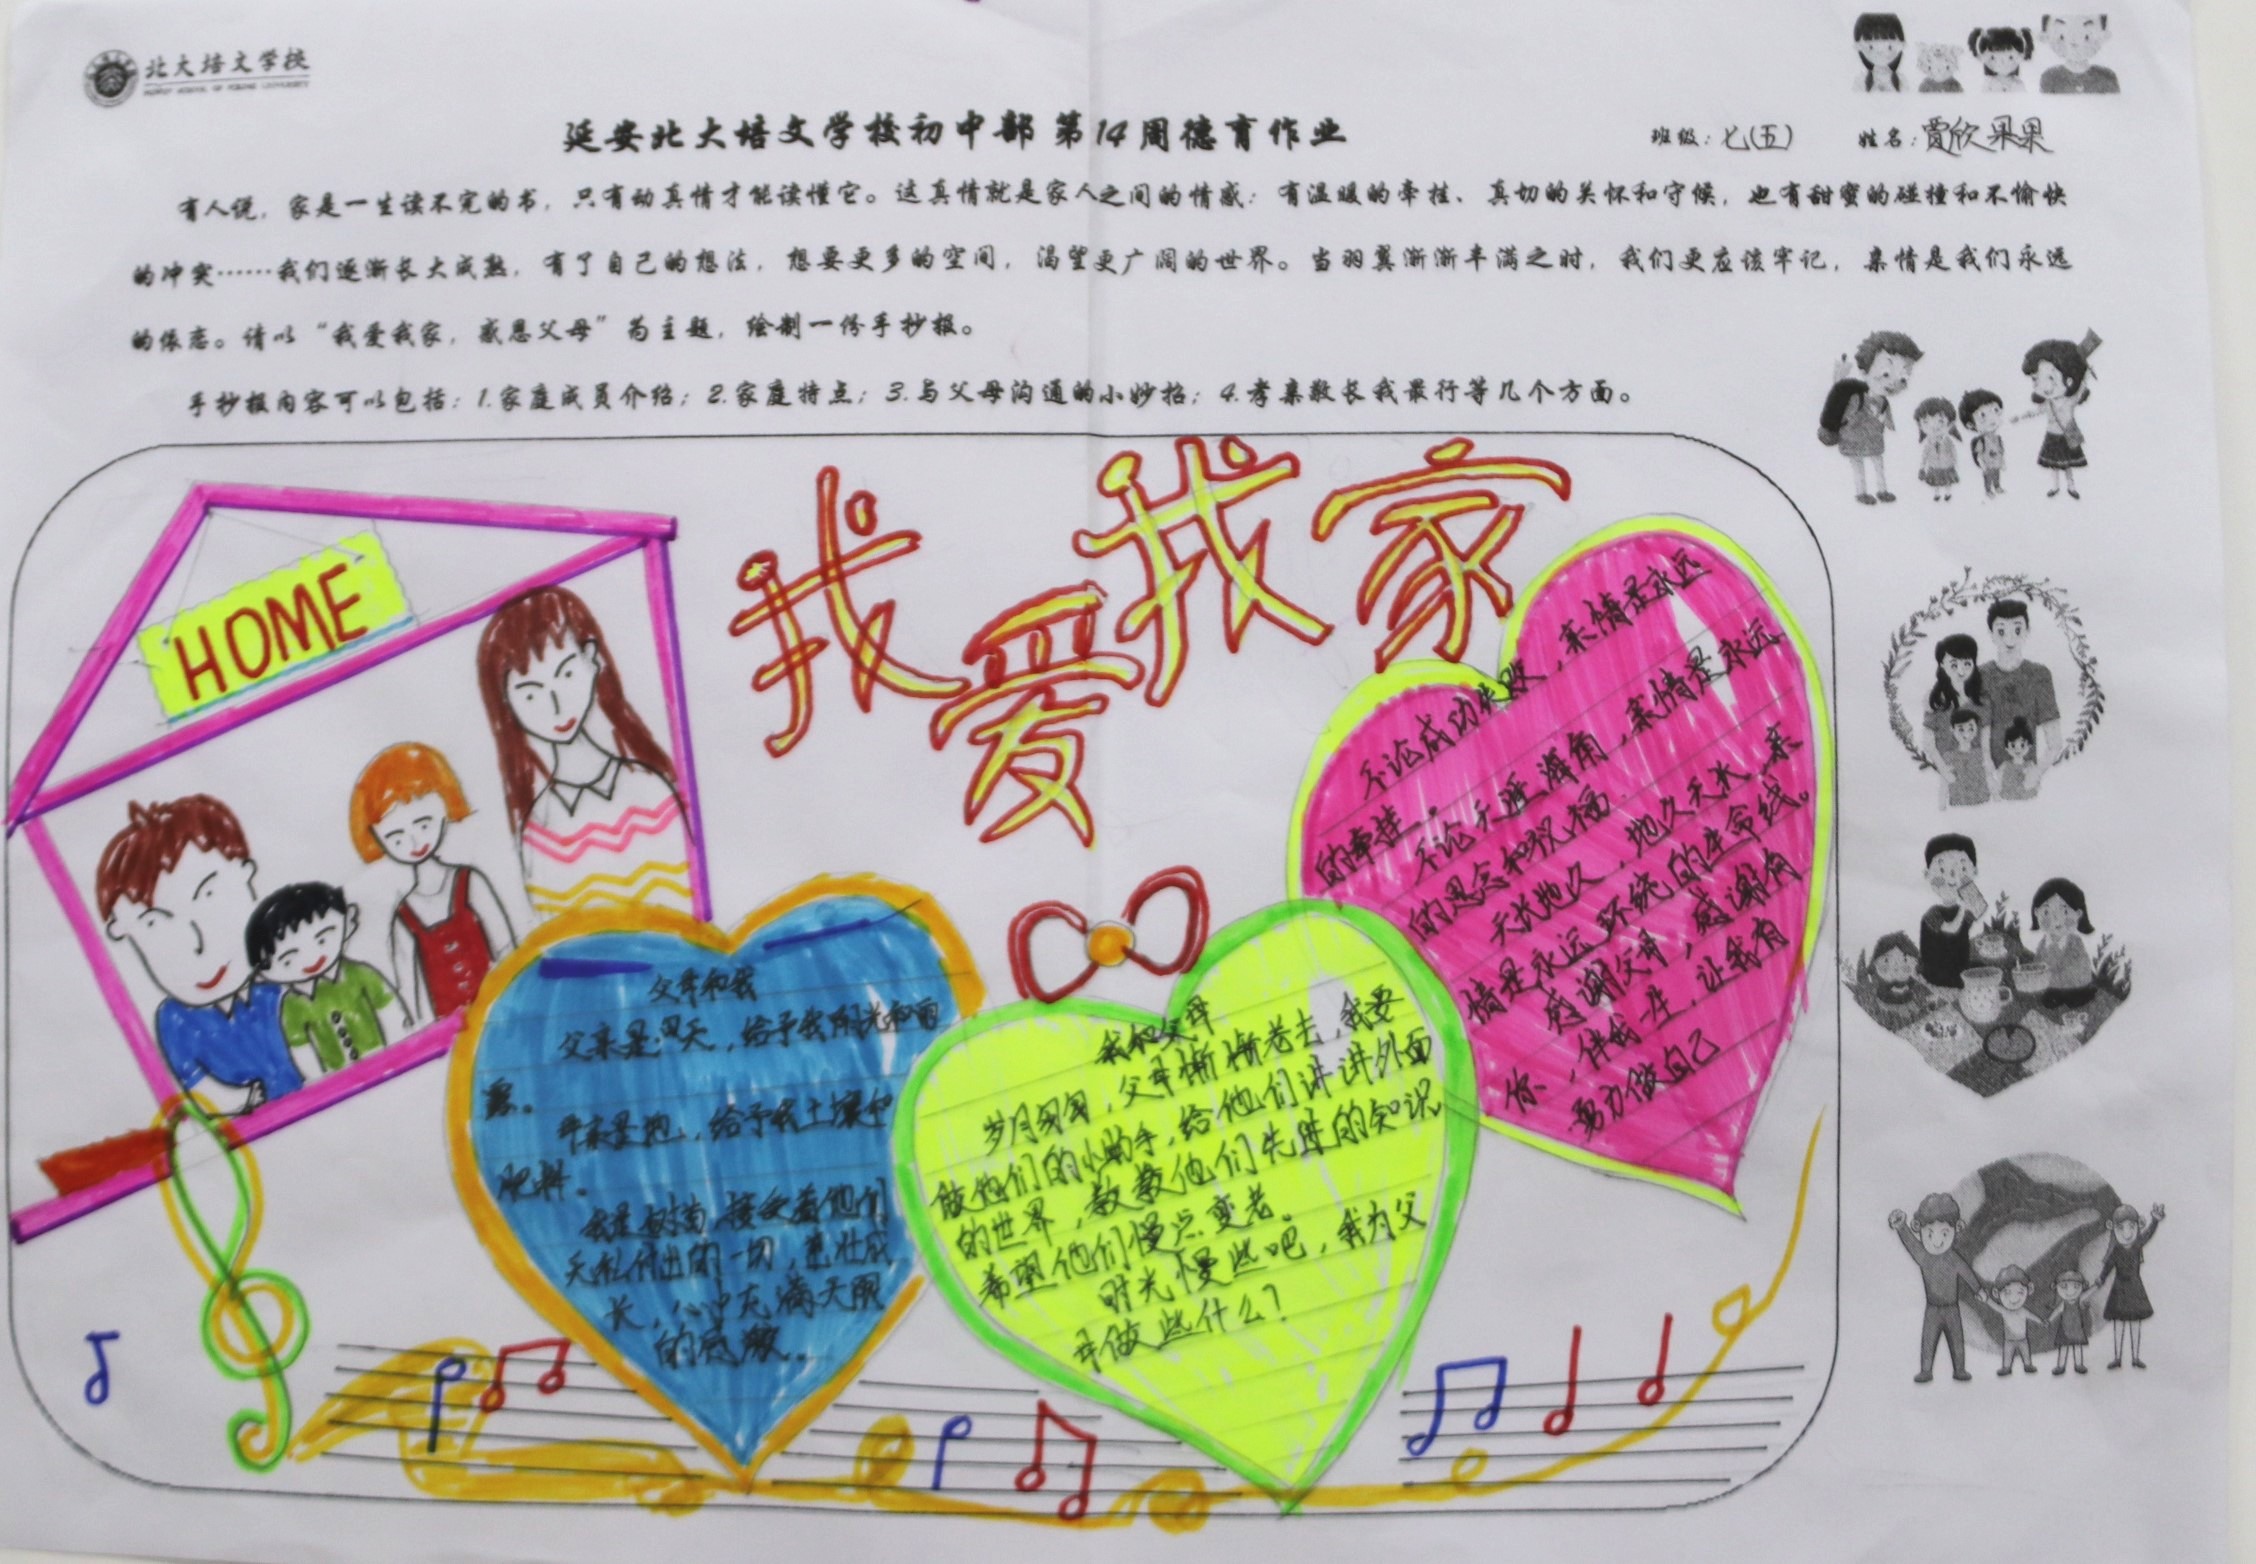 北大培文学校
延安北大培文学校初中部第14周德育作业
班级：七(五) 姓名：贾欣果果
有人说，家是一生读不完的书，只有动真情才能读懂它。这真情就是家人之间的情感：有温暖的牵挂、真切的关怀和守候，也有甜蜜的碰撞和不愉快
的冲突……我们逐渐长大成熟，有了自己的想法，想要更多的空间，渴望更广阔的世界。当羽翼渐渐丰满之时，我们更应该牢记，亲情是我们永远
的依恋。请以“我爱我家，感恩父母”为主题，绘制一份手抄报。
手抄报内容可以包括：1.家庭成员介绍；2.家庭特点；3.与父母沟通的小妙招；4.孝亲敬长我最行等几个方面。
HOME
我爱我家
父母和我
父亲是天，给予我阳光和雨
露。
母亲是地，给予我土壤和
肥料。
我是树苗，接受着他们
无私付出的一切，茁壮成
长，心中充满无限
的感激。
我和父母
岁月匆匆，父母渐渐老去，我要
做他们的小助手，给他们讲讲外面
的世界，教教他们先进的知识，
希望他们慢点变老。
时光慢些吧，我为父
母做些什么？
不论成功失败，亲情是永远
的牵挂。
不论天涯海角，亲情是永远
的思念和祝福
天长地久，地久天长，亲
情是永远环绕的生命线。
感谢父母，感谢有
你，伴我一生，让我有
勇力做自己